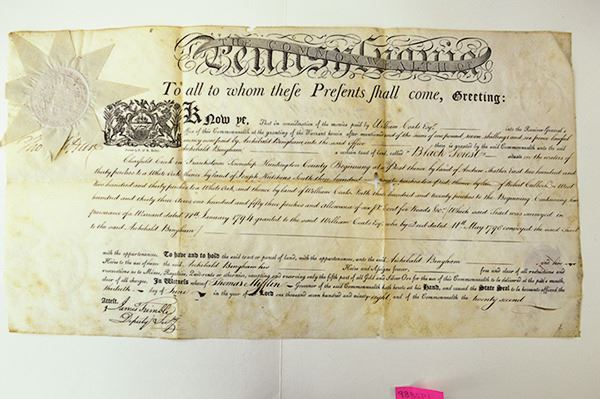 THE COMMONWEALTH OF
Pennsylvania
To all to whom these Presents shall come, Greeting:
Know ye, That in consideration of the monies paid by William Coats Esqr. into the Receiver General's
Office of this Commonwealth at the granting of the Warrant herein after mentioned and of the sum of one pound, seven shillings and six pence
by Archibald Bingham into the said Office there is granted by the said Commonwealth unto the said
Archibald Bingham a certain tract of land, called "Black Forest" situate on the waters of
Clearfield Creek in Township Huntington County Beginning at a Post thence by land of Andrew two hundred and
thirty perches to a White Oak thence by land of Joseph Hutchins South three hundred perches to a thence by land of Robert West
two hundred and thirty perches to a White Oak, and thence by land of William Coats North three hundred and twenty perches to the Beginning Containing four
hundred and thirty three Acres one hundred and fifty three perches and allowance of six Pr. Cent for Roads &c. Which said Tract was surveyed in
pursuance of a Warrant dated January 1794 granted to the said William Coats Esqr. who by Deed dated 11th May 1796 conveyed the said Tract
to the said Archibald Bingham
with the appurtenances. To have and to hold the said tract or parcel of land, with the appurtenances, unto the said Archibald Bingham and his
Heirs to the use of him the said Archibald Bingham his Heirs and Assigns forever, free and clear of all restrictions and
reservations as to Mines, Royalties, Quit-rents or otherwise, excepting and reserving only the fifth part of all Gold and Silver Ore for the use of this Commonwealth, to be delivered at the pit's mouth,
clear of all charges. In Witness whereof Thomas Mifflin Governor of the said Commonwealth hath hereto set his Hand, and caused the State Seal to be hereunto affixed the
thirtieth day of June in the year of our Lord one thousand seven hundred and ninety eight, and of the Commonwealth the twenty second
Attest.
James Trimble
Deputy Secy.
Tho Mifflin